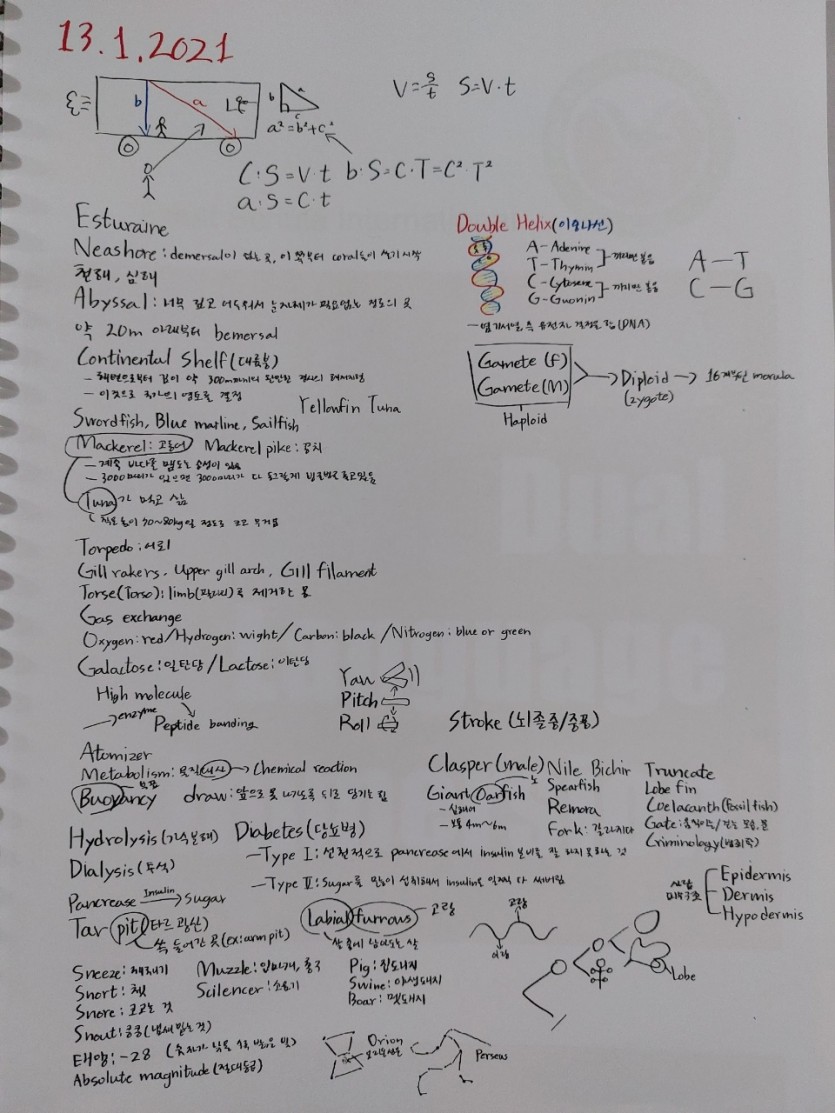 13.1.2021
b a
b a c
a² = b² + c²
V = s/t S = V·t
C: S = V·t b·S = C·T = C²·T²
a·S = C·t
Esturaine
Neashore: demersal이 있는 곳, 이 쪽부터 coral들이 생기기 시작
천해, 심해
Abyssal: 너무 깊고 어두워서 눈 자체가 필요없는 정도의 곳
약 20m 아래부터 bemersal
Continental Shelf (대륙붕)
- 해변으로부터 깊이 약 300m까지의 완만한 경사의 해저지형
- 이것으로 의 영토를 결정
Yellowfin Tuna
Swordfish, Blue marline, Sailfish
Mackerel: 고등어 Mackerel pike: 꽁치
- 계속 바다를 맴도는 습성이 있음
- 3000마리가 있으면 3000마리가 다 똑같게 돌고있음
Tuna가 먹고 삶
70~80kg일 정도로 크고 무거움
Torpedo: 어뢰
Gill rakers, Upper gill arch, Gill filament
Torse(Torso): limb(팔다리)를 제거한 몸
Gas exchange
Oxygen: red/Hydrogen: wight/Carbon: black/Nitrogen: blue or green
Galactose: 일탄당/Lactose: 이탄당
High molecule
enzyme
Peptide banding
Yaw
Pitch
Roll
Double Helix(이중나선)
A - Adenine
T - Thymin 끼리만 붙음
C - Cytosere
G - Guonin 끼리만 붙음
A — T
C — G
- 염기서열, 즉 유전자 결정 (DNA)
Gamete (F)
Gamete (M)
Haploid
Diploid
(zygote)
16 morula
Stroke (뇌졸중/중풍)
Atomizer
Metabolism: 물질대사 → Chemical reaction
Buoyancy 부표 draw: 앞으로 못 나가도록 뒤로 당기는 힘
Clasper (male)
Giant Oarfish 노
- 심해어
- 보통 4m~6m
Nile Bichir
Spearfish
Remora
Fork: 갈라지다
Truncate
Lobe fin
Coelacanth (Fossil fish)
Gate: 문
Criminology (범죄학)
Hydrolysis (가수분해) Diabetes (당뇨병)
- Type I: 선천적으로 pancrease에서 insulin 분비를 잘 하지 못하는 것
Dialysis (투석)
- Type II: Sugar를 많이 섭취해서 insulin을 다 써버림
Pancrease Insulin → Sugar
Tar pit (타르 광산)
쏙 들어간 곳 (ex: arm pit)
Labial furrows - 고랑
살
고랑
이랑
사람 피부구조
Epidermis
Dermis
Hypodermis
Lobe
Sneeze: 재채기
Snort: 쳇
Snore: 코고는 것
Snout: 킁킁 (냄새 맡는 것)
Muzzle: 입마개, 총구
Scilencer: 소음기
Pig: 집돼지
Swine: 야생돼지
Boar: 멧돼지
태양: -28 (숫자가 낮을 수록 밝은 빛)
Absolute magnitude (절대등급)
Orion
오리온성운
Perseus